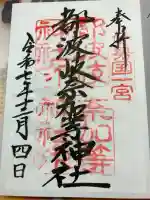 奉拝
国一宮
都波岐奈加等神社
令和七年十二月四日